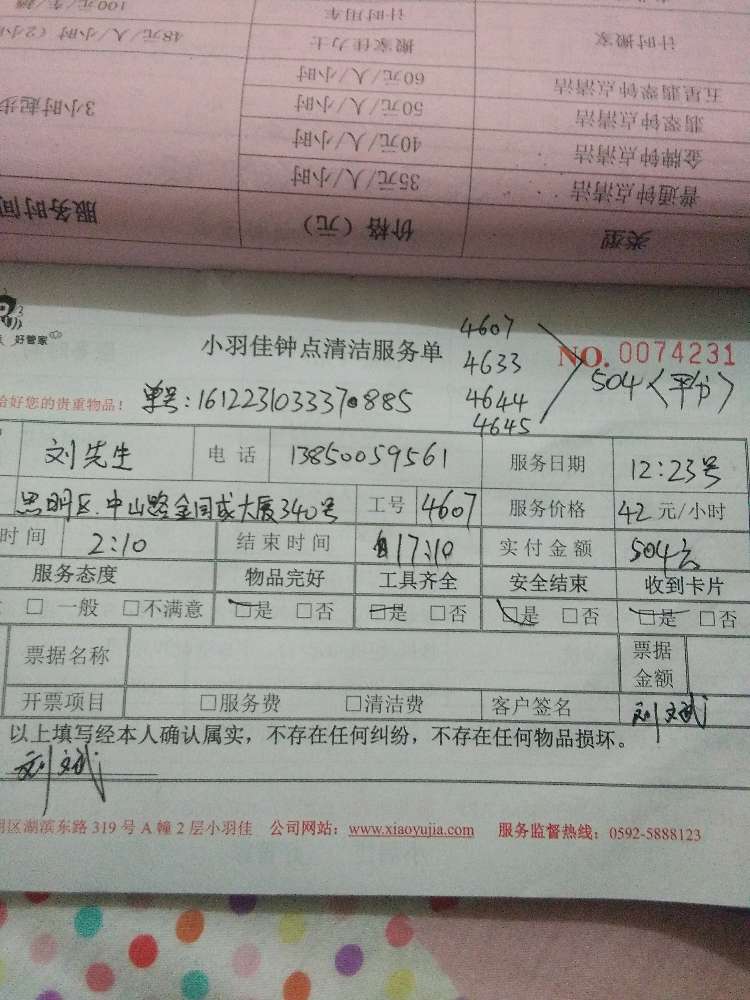 类型 价格（元） 服务时间
普通钟点清洁 35元/人/小时
金牌钟点清洁 40元/人/小时
翡翠钟点清洁 50元/人/小时 3小时起步
五星翡翠钟点清洁 60元/人/小时
计时搬家 搬家佳力士 48元/人/小时（2小
计时用车 100元/车/趟
好管家
小羽佳钟点清洁服务单
4607
4633
4644
4645
504（平分）
NO. 0074231
好您的贵重物品！
单号：161223103337885
刘先生 电话 13850059561 服务日期 12:23号
思明区.中山路金国或大厦340号 工号 4607 服务价格 42元/小时
时间 2:10 结束时间 17:10 实付金额 504元
服务态度 物品完好 工具齐全 安全结束 收到卡片
□一般 □不满意 □是 □否 □是 □否 □是 □否 □是 □否
票据名称 票据金额
开票项目 □服务费 □清洁费 客户签名 刘文斌
以上填写经本人确认属实，不存在任何纠纷，不存在任何物品损坏。
刘文斌
区湖滨东路319号A幢2层小羽佳 公司网站：www.xiaoyujia.com 服务监督热线：0592-5888123